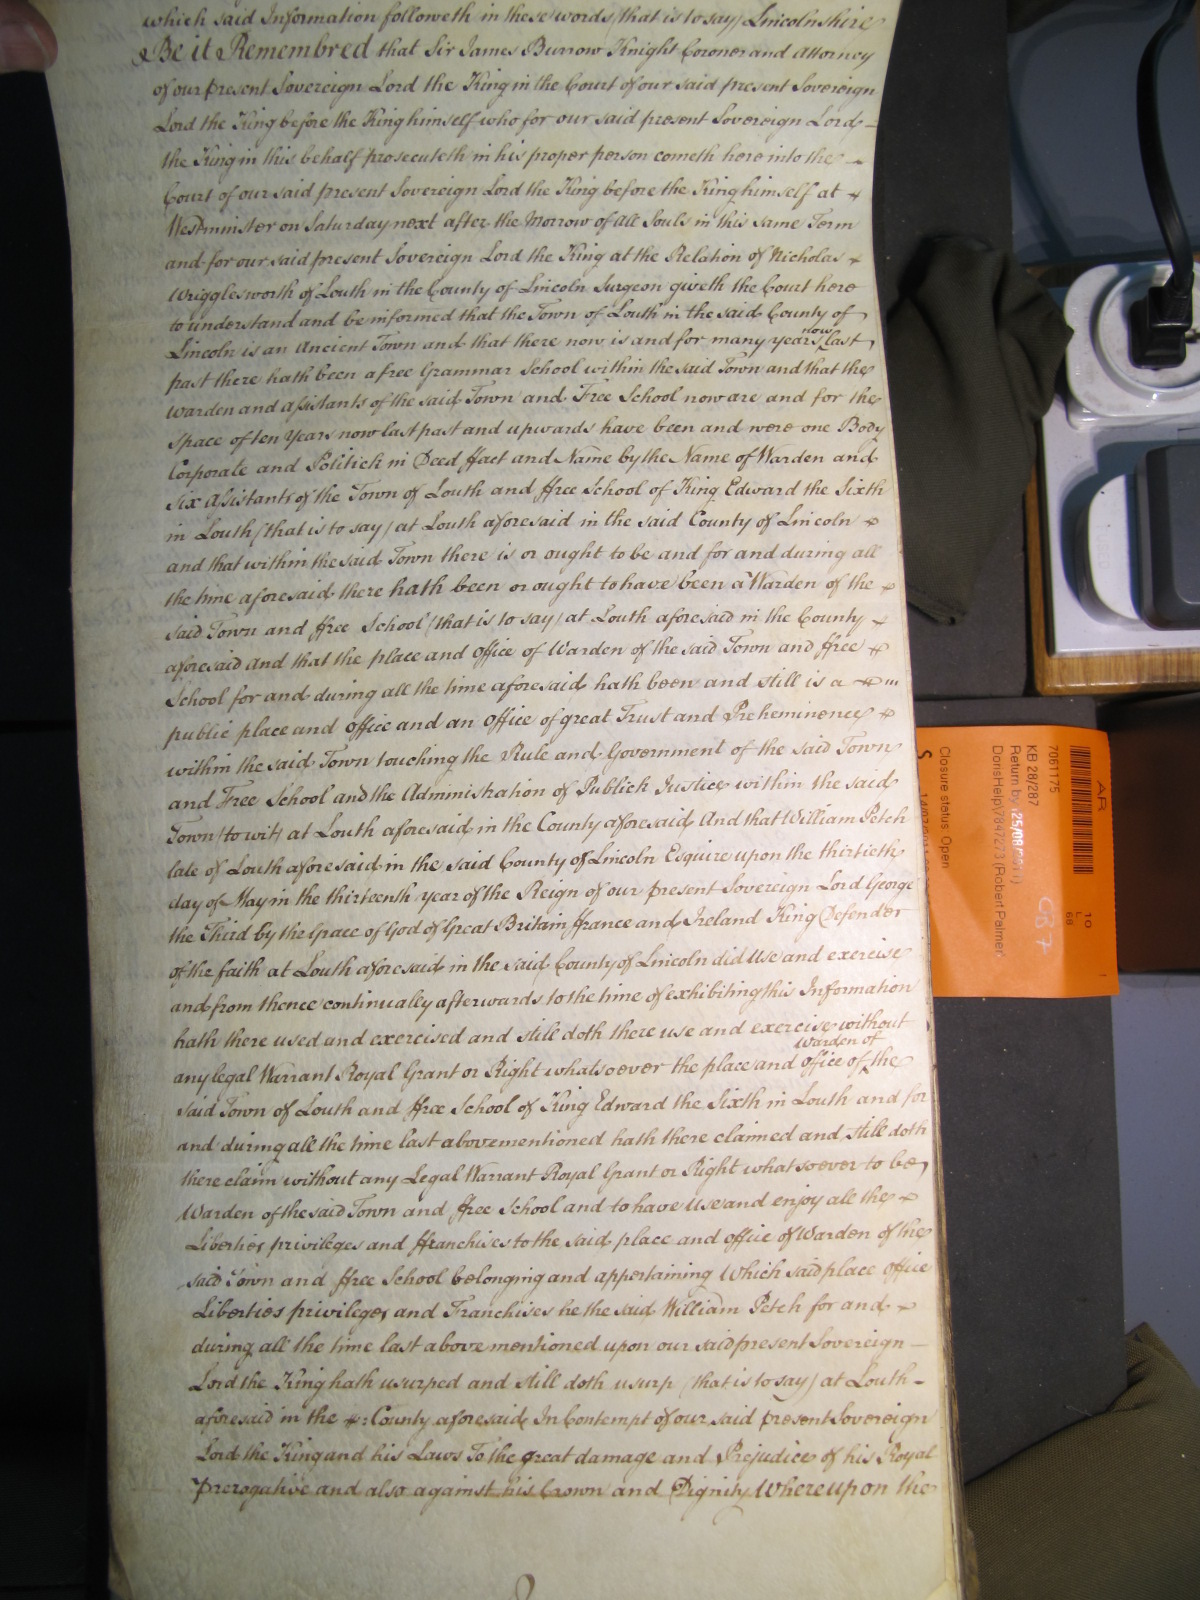 which said Information followeth in these words (that is to say) Lincolnshire
Be it Remembred that Sir James Burrow Knight Coroner and Attorney
of our present Sovereign Lord the King in the Court of our said present Sovereign
Lord the King before the King himself who for our said present Sovereign Lord
the King in this behalf prosecuteth in his proper person cometh here into the
Court of our said present Sovereign Lord the King before the King himself at
Westminster on Saturday next after the Morrow of All Souls in this same Term
and for our said present Sovereign Lord the King at the Relation of Nicholas
Wrigglesworth of Louth in the County of Lincoln Surgeon giveth the Court here
to understand and be informed that the Town of Louth in the said County of
Lincoln is an Ancient Town and that there now is and for many years now last
past there hath been a free Grammar School within the said Town and that the
Warden and Assistants of the said Town and Free School now are and for the
space of ten Years now last past and upwards have been and were one Body
Corporate and Politick in Deed ffact and Name by the Name of Warden and
Six Assistants of the Town of Louth and ffree School of King Edward the Sixth
in Louth (that is to say) at Louth aforesaid in the said County of Lincoln
and that within the said Town there is or ought to be and for and during all
the time aforesaid there hath been or ought to have been a Warden of the
said Town and ffree School (that is to say) at Louth aforesaid in the County
aforesaid and that the place and Office of Warden of the said Town and ffree
School for and during all the time aforesaid hath been and still is a
public place and Office and an Office of great Trust and Preheminency
within the said Town touching the Rule and Government of the said Town
and Free School and the Administration of Publick Justice within the said
Town (to wit) at Louth aforesaid in the County aforesaid And that William Petch
late of Louth aforesaid in the said County of Lincoln Esquire upon the thirtieth
day of May in the thirteenth year of the Reign of our present Sovereign Lord George
the Third by the Grace of God of Great Britain ffrance and Ireland King Defender
of the faith at Louth aforesaid in the said County of Lincoln did use and exercise
and from thence continually afterwards to the time of exhibiting this Information
hath there used and exercised and still doth there use and exercise without
any legal Warrant Royal Grant or Right whatsoever the place and office of Warden of the
said Town of Louth and ffree School of King Edward the Sixth in Louth and for
and during all the time last abovementioned hath there claimed and still doth
there claim without any Legal Warrant Royal Grant or Right whatsoever to be
Warden of the said Town and ffree School and to have use and enjoy all the
Liberties privileges and ffranchises to the said place and office of Warden of the
said Town and ffree School belonging and appertaining Which said place office
Liberties privileges and Franchises he the said William Petch for and
during all the time last above mentioned upon our said present Sovereign
Lord the King hath usurped and still doth usurp (that is to say) at Louth
aforesaid in the County aforesaid In Contempt of our said present Sovereign
Lord the King and his Laws To the great damage and Prejudice of his Royal
Prerogative and also against his Crown and Dignity Whereupon the
AR
7061175
KB 28/287
Return by (25/08/2011)
DorisHelp (Robert Palmer)
Closure status: Open